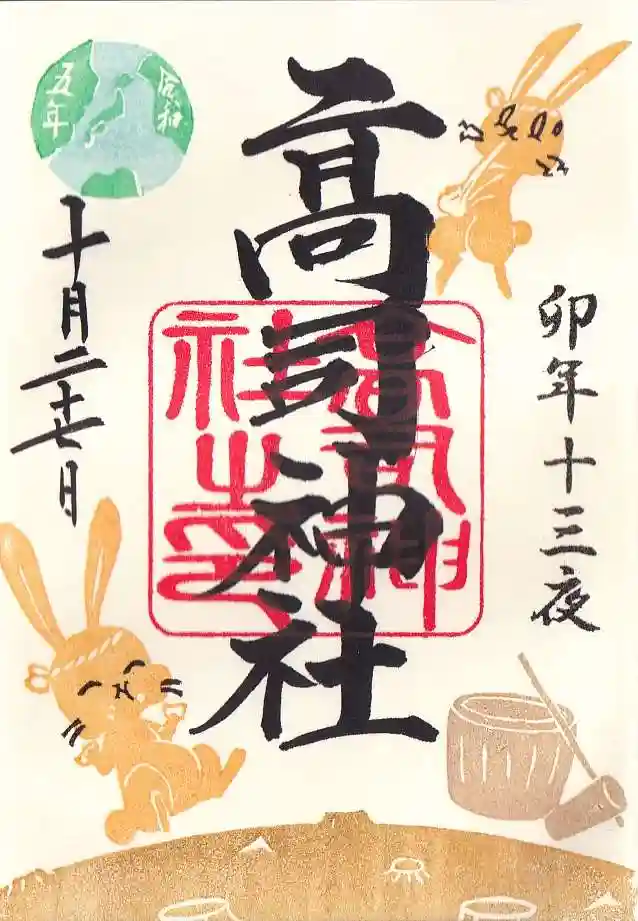 卯年十三夜
高司神社
高司神
社之印
令和
五年
十月二十七日